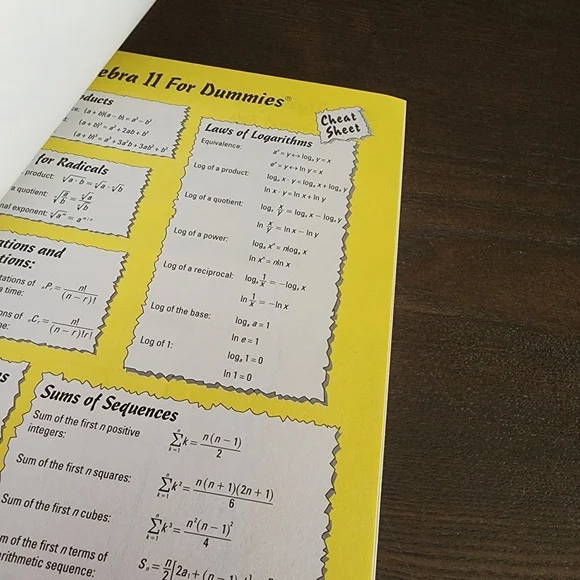 ebra II For Dummies®
Cheat
Sheet
ducts
(a + b)(a − b) = a² − b²
(a + b)² = a² + 2ab + b²
(a + b)³ = a³ + 3a²b + 3ab² + b³
for Radicals
product: ⁿ√a · b = ⁿ√a · ⁿ√b
quotient: ⁿ√a/b = ⁿ√a / ⁿ√b
nal exponent:
ations and
tions:
tations of
a time: ₙPᵣ = n! / (n − r)!
ons of
ne: ₙCᵣ = n! / (n − r)!r!
Laws of Logarithms
Equivalence: aˣ = y ↔ logₐ y = x
eˣ = y ↔ ln y = x
Log of a product: logₐ x · y = logₐ x + logₐ y
ln x · y = ln x + ln y
Log of a quotient: logₐ x/y = logₐ x − logₐ y
ln x/y = ln x − ln y
Log of a power: logₐ xⁿ = nlogₐ x
ln xⁿ = nln x
Log of a reciprocal: logₐ 1/x = −logₐ x
ln 1/x = −ln x
Log of the base: logₐ a = 1
ln e = 1
Log of 1: logₐ 1 = 0
ln 1 = 0
s
Sums of Sequences
Sum of the first n positive
integers: n Σ k=1 k = n(n − 1) / 2
Sum of the first n squares: n Σ k=1 k² = n(n + 1)(2n + 1) / 6
Sum of the first n cubes: n Σ k=1 k³ = n²(n − 1)² / 4
m of the first n terms of
rithmetic sequence: Sₙ = n/2 [2a₁ + (n − 1)